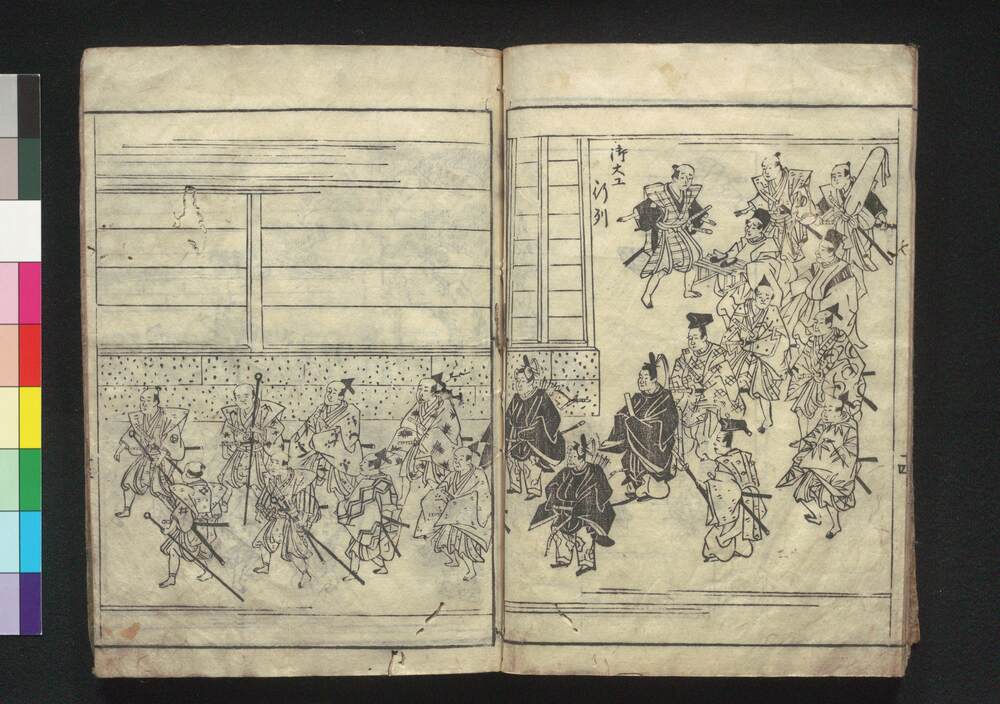 御大工
行列